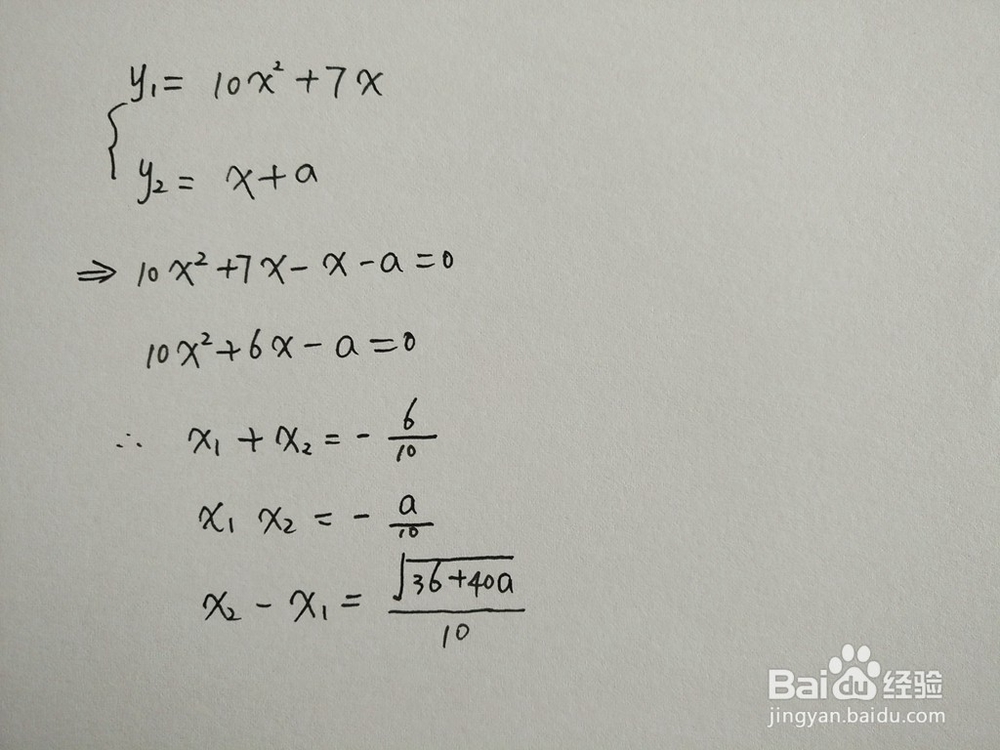 y₁ = 10x² + 7x
y₂ = x + a
⇒ 10x² + 7x - x - a = 0
10x² + 6x - a = 0
∴ x₁ + x₂ = - 6/10
x₁ x₂ = - a/10
x₂ - x₁ = √(36+40a)/10
Baidu经验
jingyan.baidu.com